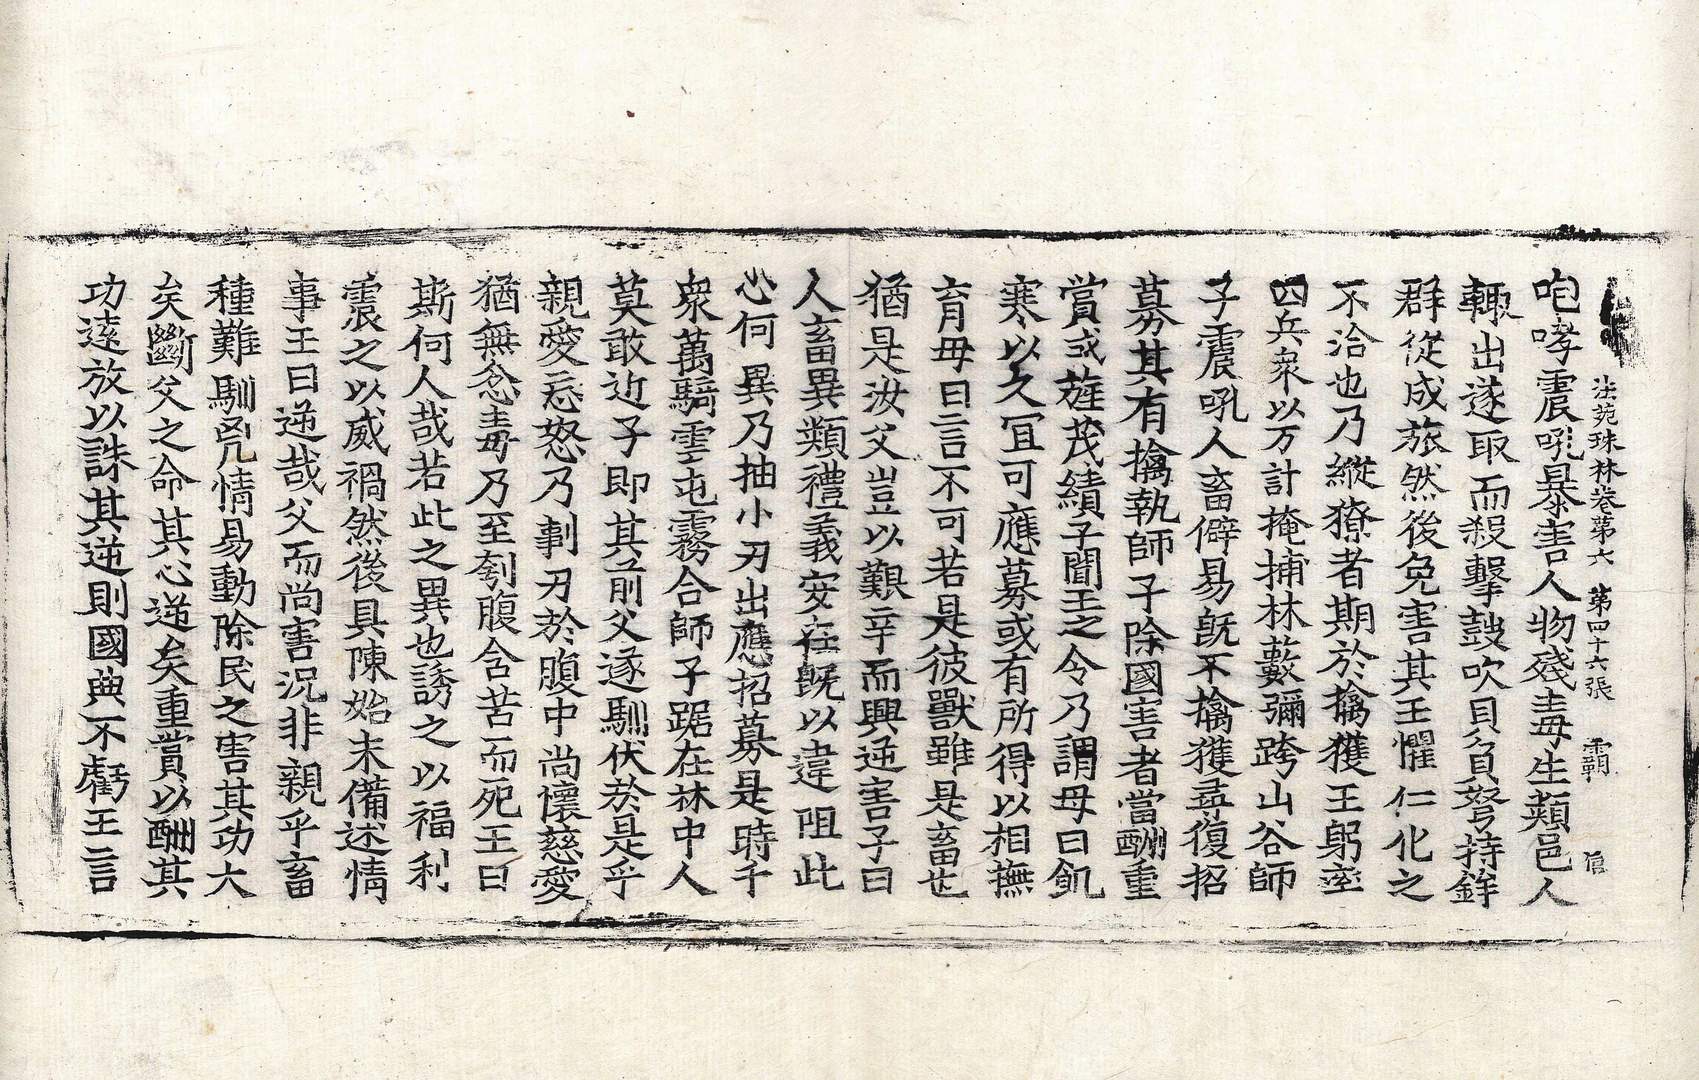 法苑珠林卷第六　第四十六張　霸
咆哮震吼暴害人物殘毒生類邑人
輙出遂取而殺擊鼓吹貝負弩持鉾
群從成旅然後免害其王懼仁化之
不洽也乃縱獠者期於擒獲王躬率
四兵衆以万計掩捕林藪彌跨山谷師
子震吼人畜僻易旣不擒獲尋復招
募其有擒執師子除國害者當酬重
賞或旌茂績子聞王之令乃謂母曰飢
寒以久冝可應募或有所得以相撫
育母曰言不可若是彼獸雖是畜也
猶是汝父豈以艱辛而興逆害子曰
人畜異類禮義安在旣以違阻此
心何異乃抽小刃出應招募是時千
衆萬騎雲屯霧合師子踞在林中人
莫敢近子即其前父遂馴伏於是乎
親愛忘怒乃剚刃於腹中尚懷慈愛
猶無忿毒乃至刳腹含苦而死王曰
斯何人哉若此之異也誘之以福利
震之以威禍然後具陳始末備述情
事王曰逆哉父而尚害況非親乎畜
種難馴兇情易動除民之害其功大
矣斷父之命其心逆矣重賞以酬其
功遠放以誅其逆則國典不虧王言